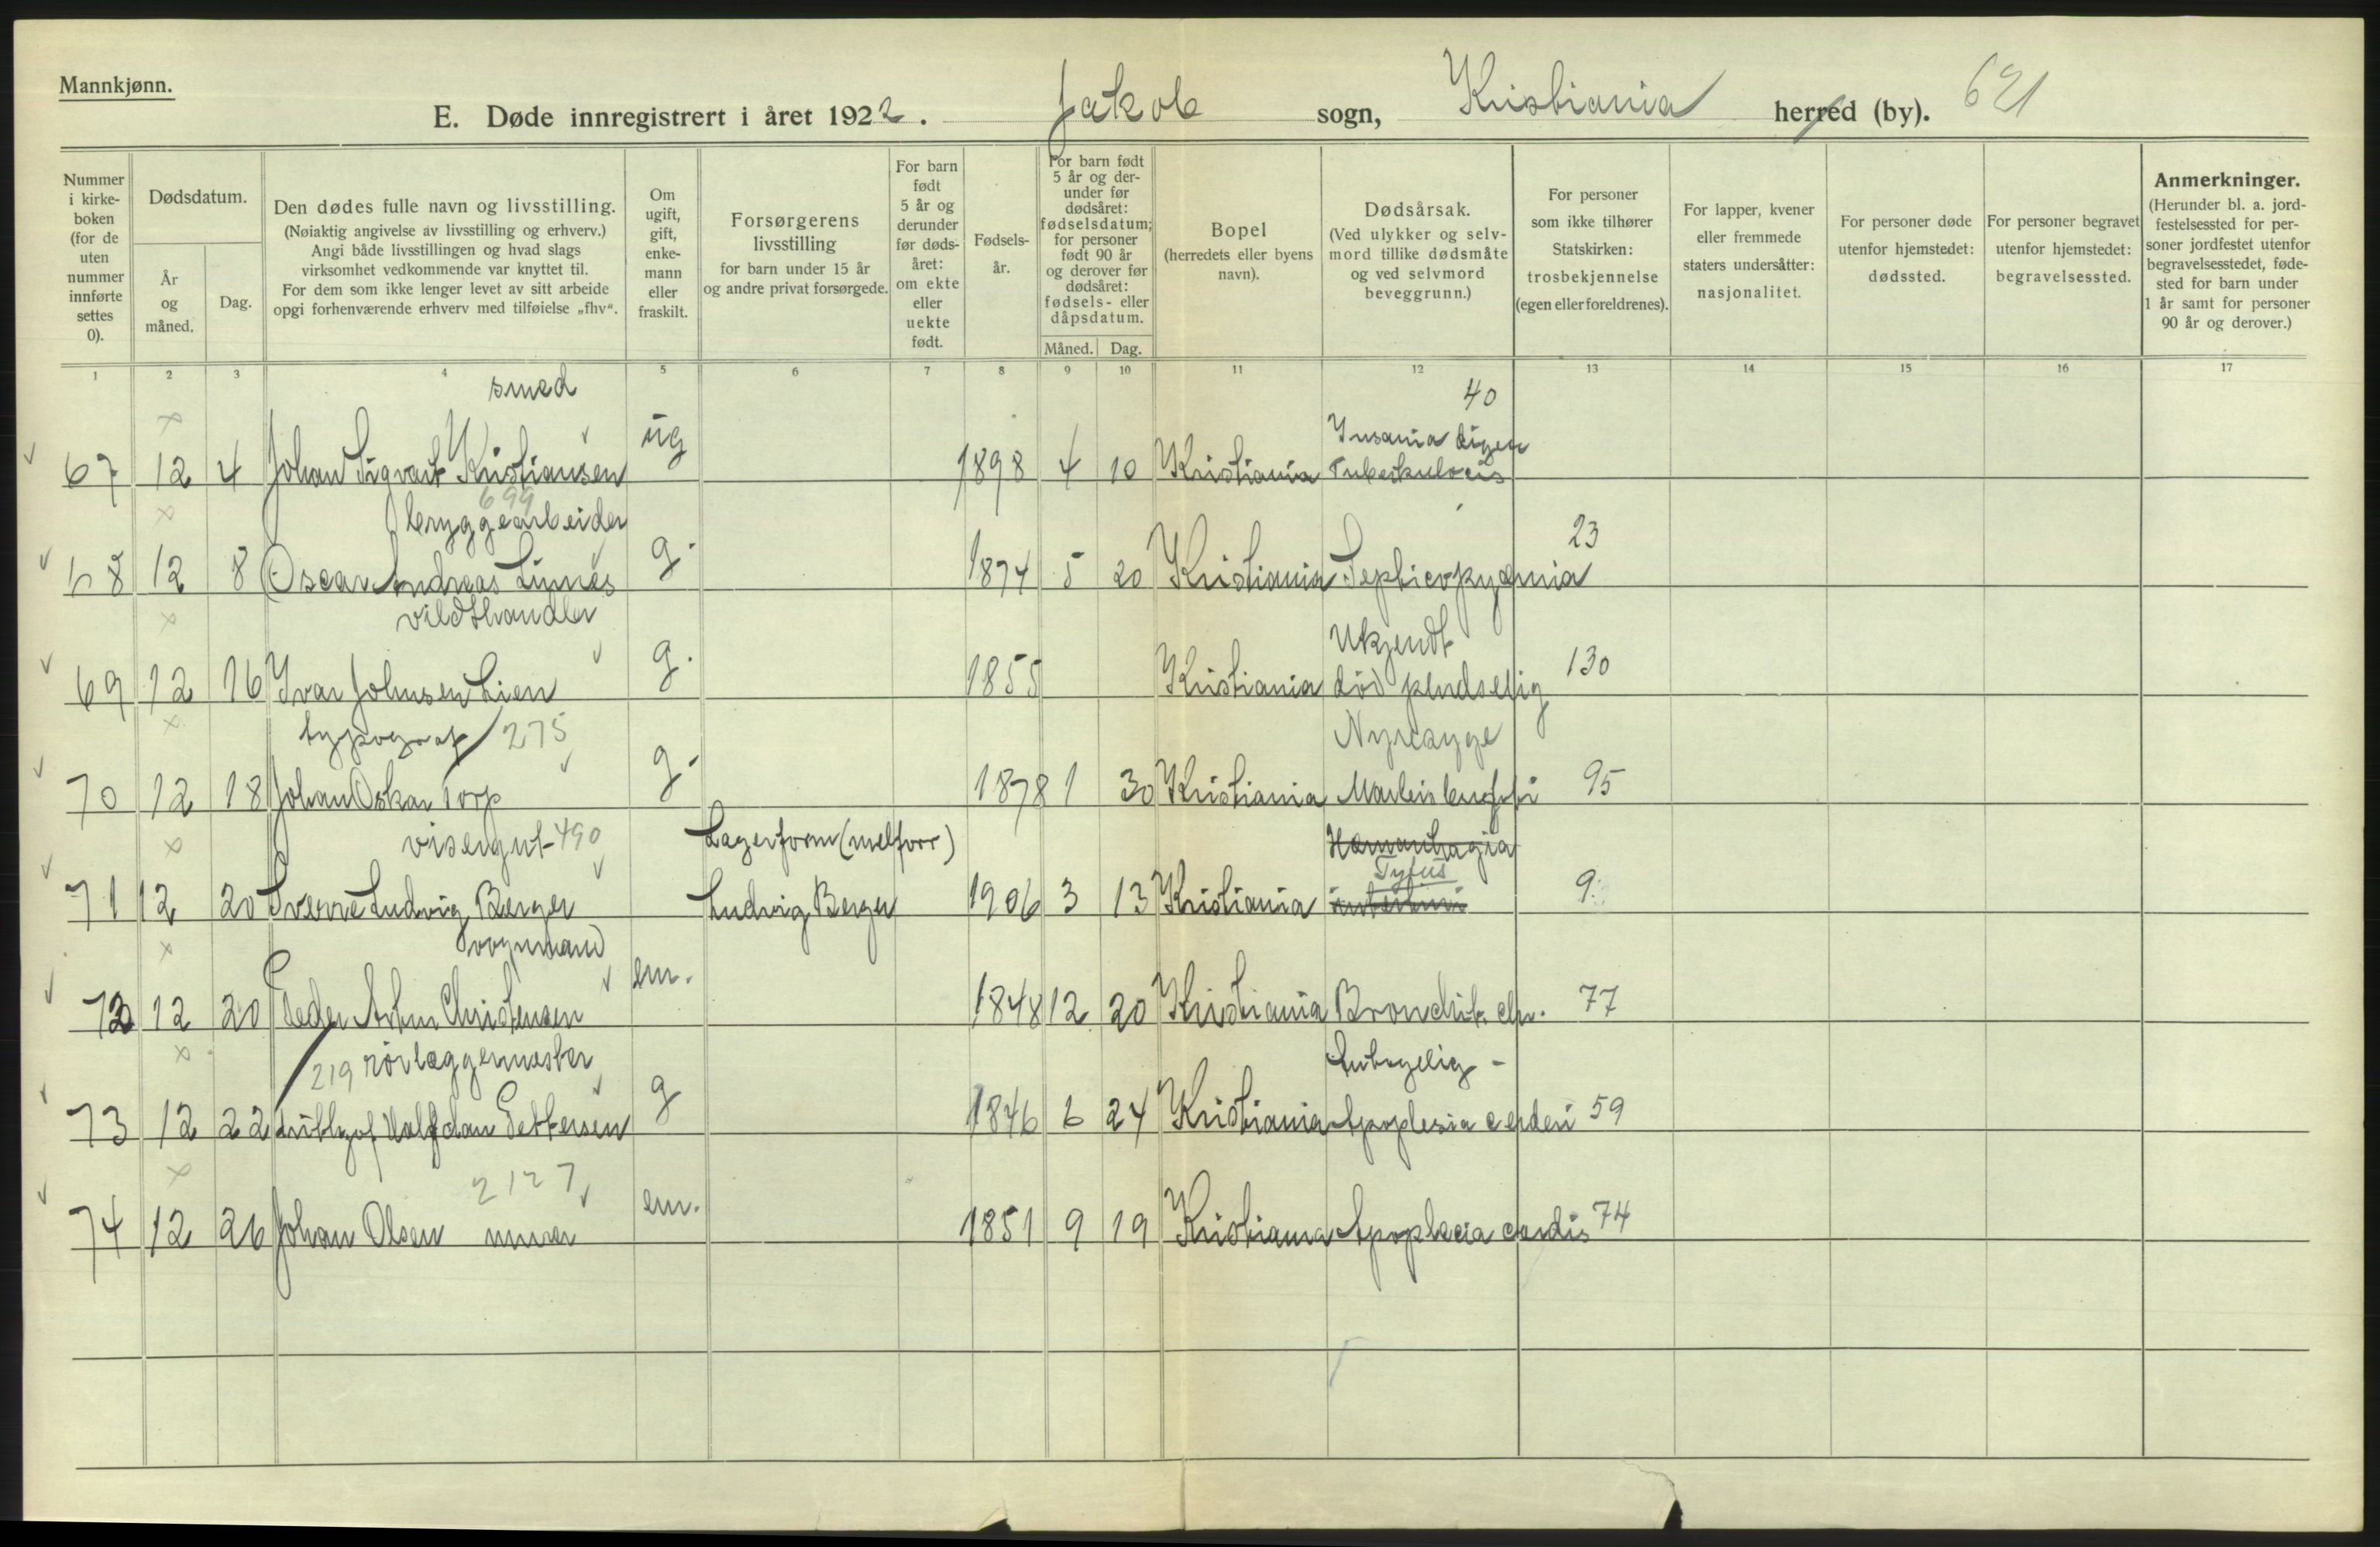 Mannkjønn.
E. Døde innregistrert i året 1922. Jakob sogn, Kristiania herred (by). 621
Nummer i kirkeboken (for de uten nummer innførte settes 0).
Dødsdatum.
År og måned.
Dag.
Den dødes fulle navn og livsstilling.
(Nøiaktig angivelse av livsstilling og erhverv.)
Angi både livsstillingen og hvad slags
virksomhet vedkommende var knyttet til.
For dem som ikke lenger levet av sitt arbeide
opgi forhenværende erhverv med tilføielse „fhv“.
Om ugift, gift, enkemann eller fraskilt.
Forsørgerens livsstilling
for barn under 15 år
og andre privat forsørgede.
For barn født 5 år og derunder før dødsåret: om ekte eller uekte født.
Fødselsår.
For barn født 5 år og derunder før dødsåret: fødselsdatum; for personer født 90 år og derover før dødsåret: fødsels- eller dåpsdatum.
Måned. Dag.
Bopel
(herredets eller byens navn).
Dødsårsak.
(Ved ulykker og selvmord tillike dødsmåte og ved selvmord beveggrunn.)
For personer som ikke tilhører Statskirken: trosbekjennelse (egen eller foreldrenes).
For lapper, kvener eller fremmede staters undersåtter: nasjonalitet.
For personer døde utenfor hjemstedet: dødssted.
For personer begravet utenfor hjemstedet: begravelsessted.
Anmerkninger.
(Herunder bl. a. jordfestelsessted for personer jordfestet utenfor begravelsesstedet, fødested for barn under 1 år samt for personer 90 år og derover.)
1 2 3 4 5 6 7 8 9 10 11 12 13 14 15 16 17
smed 40
Insania
67 12 4 Johan Sigvart Kristiansen ug 1898 4 10 Kristiania Tuberkulosis
699
bryggearbeider 23
68 12 8 Oscar Andreas Linnes g. 1874 5 20 Kristiania
vildthandler Ukjendt
69 12 16 Ivar Johnsen Lien g. 1855 Kristiania død pludselig 130
typograf 275
70 12 18 Johan Oskar Torp g. 1878 1 30 Kristiania 95
visergut 490 Lagerform (melforr) Hæmorrhagia
Tyfus
71 12 20 Sverre Ludvig Berger Ludvig Berger 1906 3 13 Kristiania 9
vognmand
72 12 20 Peder Anton Christensen em. 1848 12 20 Kristiania Bronchit. chr. 77
219 rørlæggermester
73 12 22 Halfdan Pettersen g 1846 6 24 Kristiania Apoplexia 59
2127
74 12 26 Johan Olsen murer em. 1851 9 19 Kristiania Apoplexia cordis 74